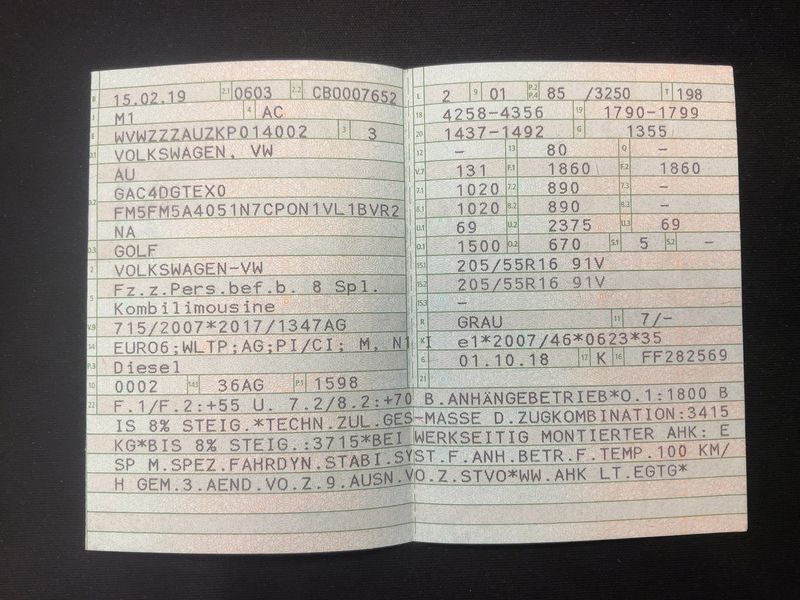 B 15.02.19 2.1 0603 2.2 CB0007652
J M1 4 AC
E WVWZZZAUZKP014002 3 3
D.1 VOLKSWAGEN, VW
AU
D.2 GAC4DGTEX0
FM5FM5A4051N7CPON1VL1BVR2
NA
D.3 GOLF
2 VOLKSWAGEN-VW
5 Fz.z.Pers.bef.b. 8 Spl.
Kombilimousine
V.9 715/2007*2017/1347AG
14 EURO6;WLTP;AG;PI/CI; M, N1 I
P.3 Diesel
10 0002 14.1 36AG P.1 1598
L 2 9 01 P.2 P.4 85 /3250 T 198
18 4258-4356 19 1790-1799
20 1437-1492 G 1355
12 - 13 80 Q -
V.7 131 F.1 1860 F.2 1860
7.1 1020 7.2 890 7.3 -
8.1 1020 8.2 890 8.3 -
U.1 69 U.2 2375 U.3 69
O.1 1500 O.2 670 S.1 5 S.2 -
15.1 205/55R16 91V
15.2 205/55R16 91V
15.3 -
R GRAU 11 7/-
K e1*2007/46*0623*35
6 01.10.18 17 K 16 FF282569
21
22 F.1/F.2:+55 U. 7.2/8.2:+70 B.ANHÄNGEBETRIEB*O.1:1800 B
IS 8% STEIG.*TECHN.ZUL.GES-MASSE D.ZUGKOMBINATION:3415
KG*BIS 8% STEIG.:3715*BEI WERKSEITIG MONTIERTER AHK: E
SP M.SPEZ.FAHRDYN.STABI.SYST.F.ANH.BETR.F.TEMP.100 KM/
H GEM.3.AEND.VO.Z.9.AUSN.VO.Z.STVO*WW.AHK LT.EGTG*